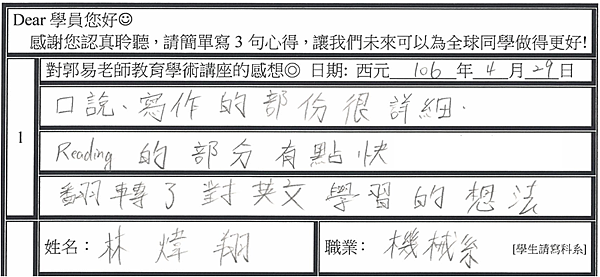 Dear 學員您好☺
感謝您認真聆聽，請簡單寫 3 句心得，讓我們未來可以為全球同學做得更好!
對郭易老師教育學術講座的感想◎ 日期: 西元 106 年 4 月 29 日
1
口說、寫作的部份很詳細.
Reading 的部分有點快
翻轉了對英文學習的想法
姓名： 林煒翔 職業： 機械系 [學生請寫科系]